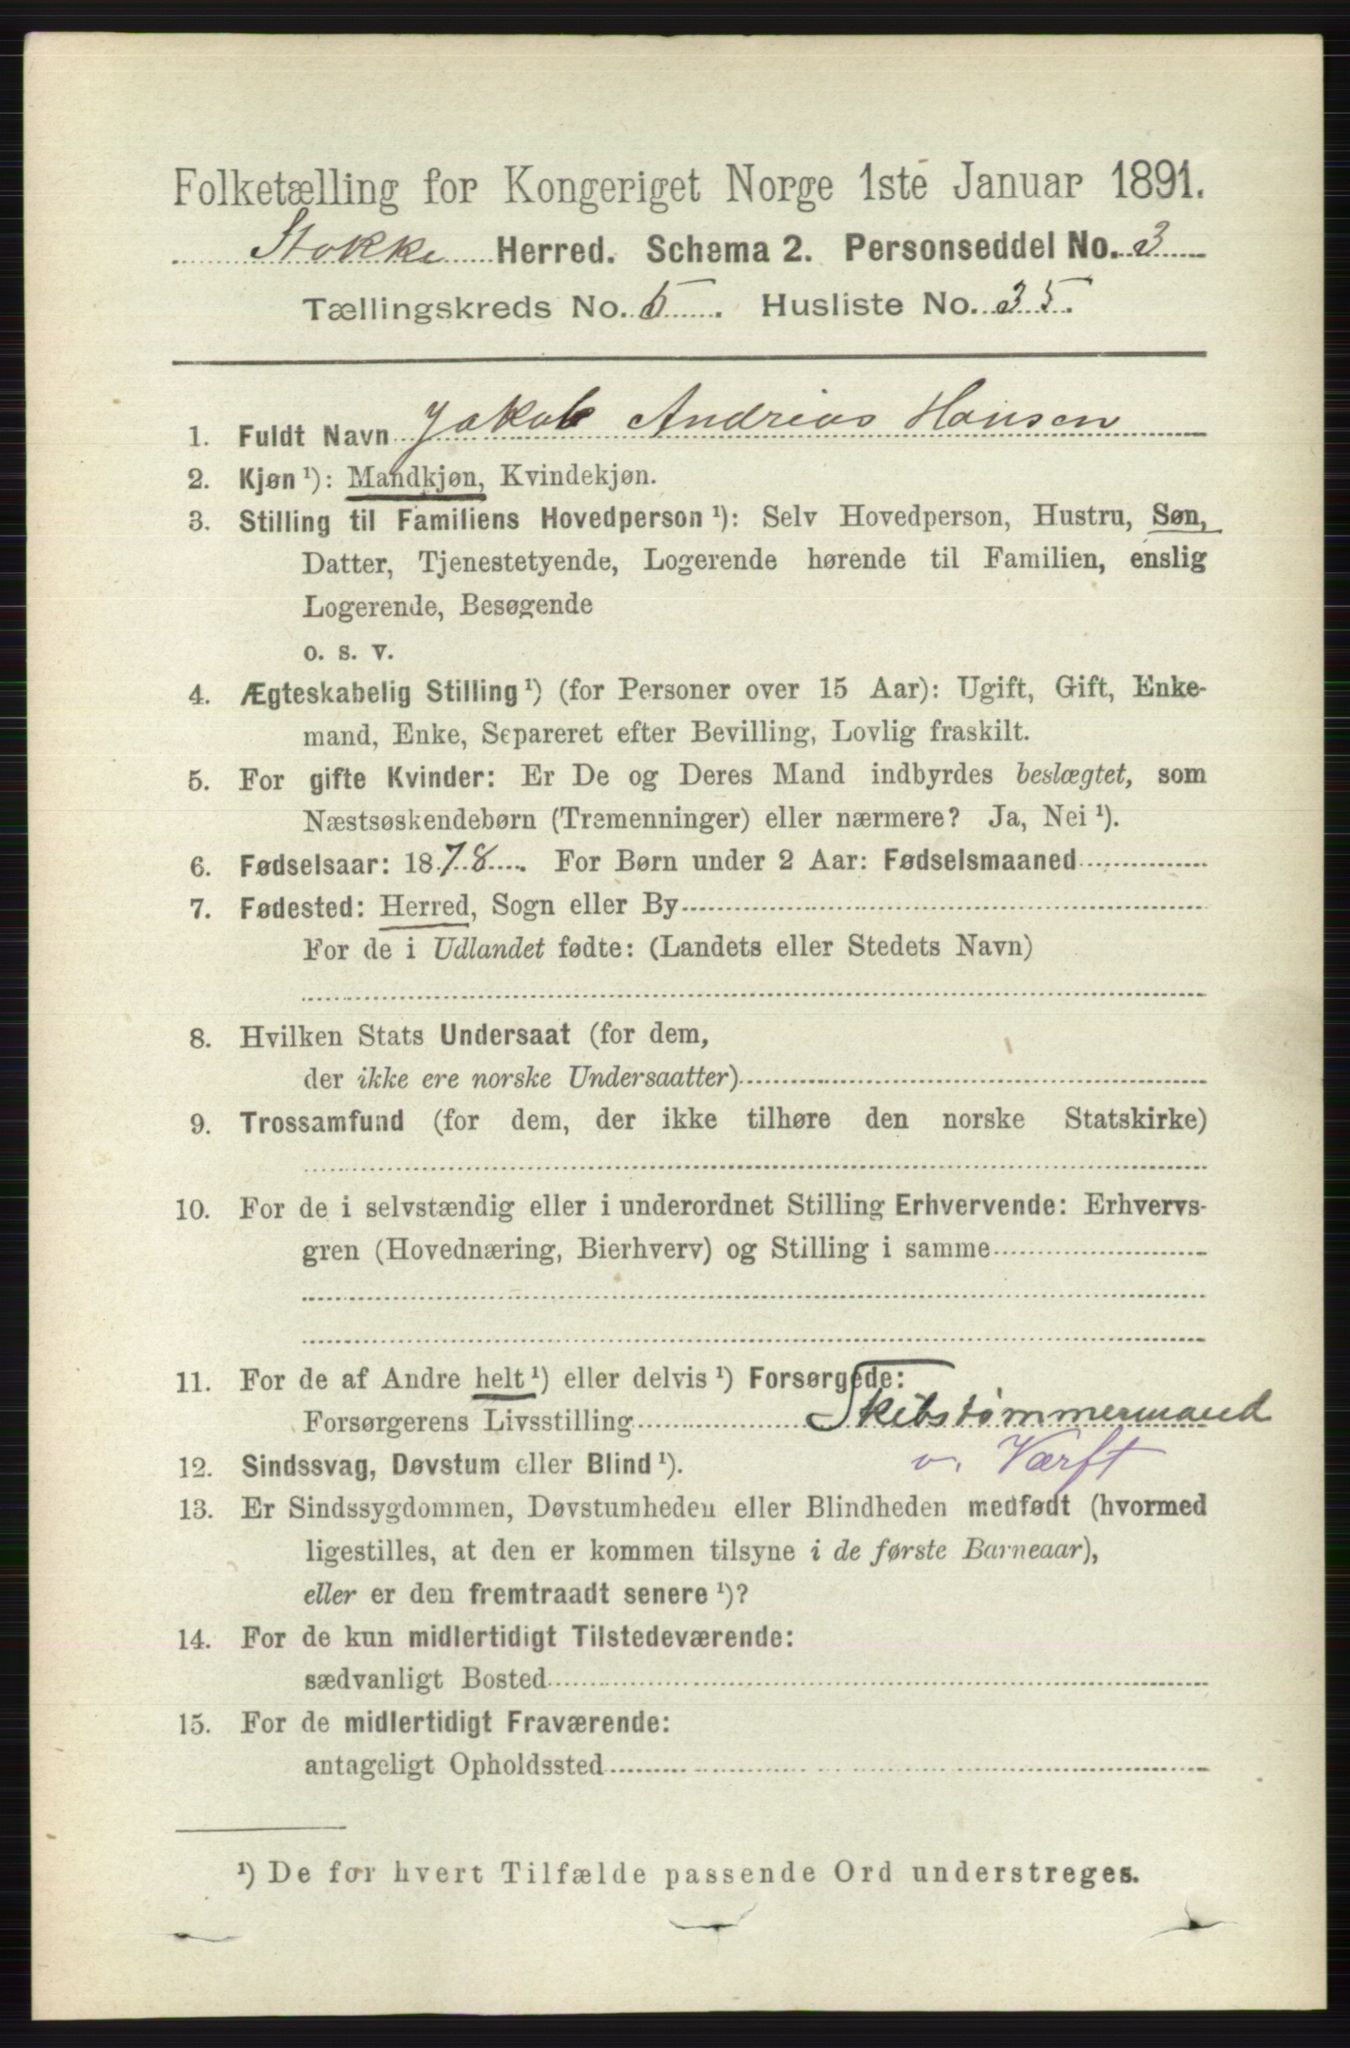 Folketælling for Kongeriget Norge 1ste Januar 1891.
Stokke Herred. Schema 2. Personseddel No. 3
Tællingskreds No. 5. Husliste No. 35.
1. Fuldt Navn Jakob Andreas Hansen
2. Kjøn ¹): Mandkjøn, Kvindekjøn.
3. Stilling til Familiens Hovedperson ¹): Selv Hovedperson, Hustru, Søn,
Datter, Tjenestetyende, Logerende hørende til Familien, enslig
Logerende, Besøgende
o. s. v.
4. Ægteskabelig Stilling ¹) (for Personer over 15 Aar): Ugift, Gift, Enke-
mand, Enke, Separeret efter Bevilling, Lovlig fraskilt.
5. For gifte Kvinder: Er De og Deres Mand indbyrdes beslægtet, som
Næstsøskendebørn (Tremenninger) eller nærmere? Ja, Nei ¹).
6. Fødselsaar: 1878. For Børn under 2 Aar: Fødselsmaaned
7. Fødested: Herred, Sogn eller By
For de i Udlandet fødte: (Landets eller Stedets Navn)
8. Hvilken Stats Undersaat (for dem,
der ikke ere norske Undersaatter)
9. Trossamfund (for dem, der ikke tilhøre den norske Statskirke)
10. For de i selvstændig eller i underordnet Stilling Erhvervende: Erhvervs-
gren (Hovednæring, Bierhverv) og Stilling i samme
11. For de af Andre helt ¹) eller delvis ¹) Forsørgede:
Forsørgerens Livsstilling Skibstømmermand
v. Værft
12. Sindssvag, Døvstum eller Blind ¹).
13. Er Sindssygdommen, Døvstumheden eller Blindheden medfødt (hvormed
ligestilles, at den er kommen tilsyne i de første Barneaar),
eller er den fremtraadt senere ¹)?
14. For de kun midlertidigt Tilstedeværende:
sædvanligt Bosted
15. For de midlertidigt Fraværende:
antageligt Opholdssted
¹) De for hvert Tilfælde passende Ord understreges.